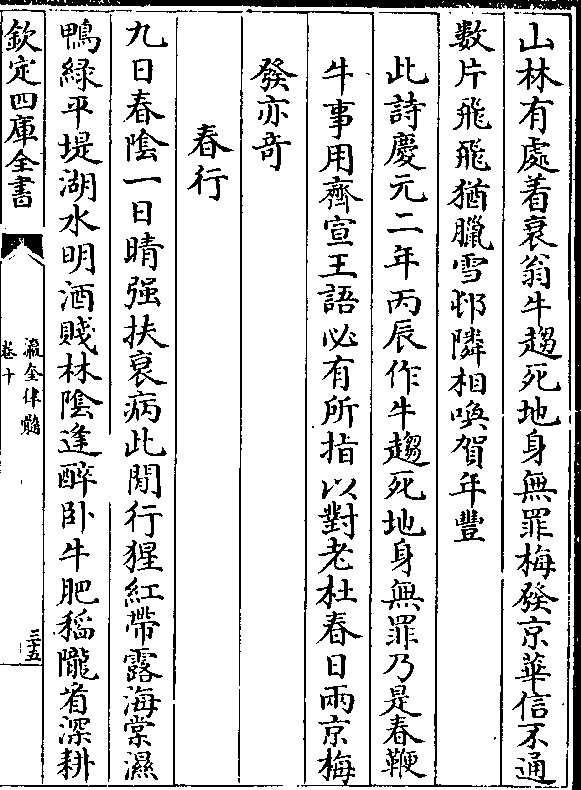 山林有處着衰翁牛趨死地身無罪梅發京華信不通
數片飛飛猶臘雪邨隣相喚賀年豐
此詩慶元二年丙辰作牛趨死地身無罪乃是春鞭
牛事用齊宣王語必有所指以對老杜春日兩京梅
發亦竒
春行
九日春陰一日晴强扶衰病此閒行猩紅帶露海棠濕
鴨緑平堤湖水明酒賤林陰逢醉卧牛肥稻隴看深耕
欽定四庫全書
瀛奎律髓
卷十
三十五